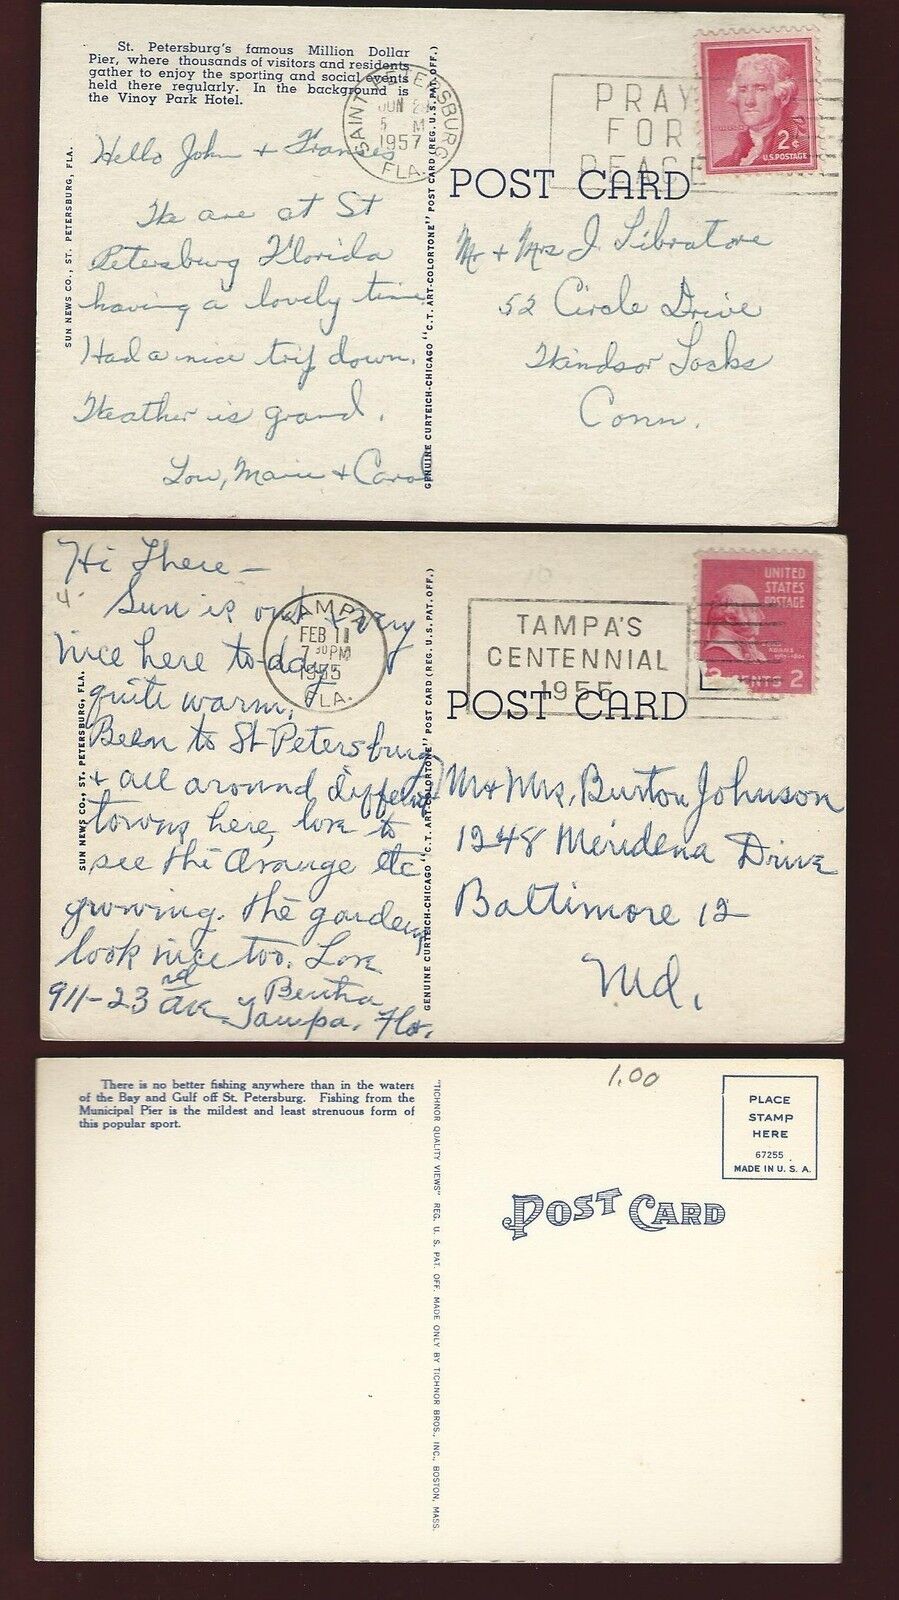 St. Petersburg's famous Million Dollar
Pier, where thousands of visitors and residents
gather to enjoy the sporting and social events
held there regularly. In the background is
the Vinoy Park Hotel.
SAINT PETERSBURG
JUN 2
5 M
1957
FLA.
PRAY
FOR
PEACE
2¢
U.S. POSTAGE
POST CARD
SUN NEWS CO., ST. PETERSBURG, FLA.
GENUINE CURTEICH-CHICAGO "C.T. ART-COLORTONE" POST CARD (REG. U.S. PAT. OFF.)
Hello John + Franses
We are at St
Petersburg Florida
having a lovely time
Had a nice trip down.
Weather is grand.
Lou, Marie + Carol
Mr + Mrs J. Libratore
52 Circle Drive
Windsor Locks
Conn.
Hi There –
4.
Sun is out + very
nice here to-day
quite warm.
Been to St Petersburg
+ all around different
towns here, love to
see the Orange etc
growing. The gardens
look nice too. Love
Bertha
911-23rd ave
Tampa, Fla.
TAMPA
FEB 11
7 30 PM
1955
FLA.
TAMPA'S
CENTENNIAL
1955
UNITED
STATES
POSTAGE
ADAMS
CENTS 2
POST CARD
SUN NEWS CO., ST. PETERSBURG, FLA.
GENUINE CURTEICH-CHICAGO "C.T. ART-COLORTONE" POST CARD (REG. U.S. PAT. OFF.)
Mr + Mrs. Burton Johnson
1248 Meridena Drive
Baltimore 12
Md.
There is no better fishing anywhere than in the waters
of the Bay and Gulf off St. Petersburg. Fishing from the
Municipal Pier is the mildest and least strenuous form of
this popular sport.
"TICHNOR QUALITY VIEWS" REG. U. S. PAT. OFF. MADE ONLY BY TICHNOR BROS., INC., BOSTON, MASS.
1.00
PLACE
STAMP
HERE
67255
MADE IN U. S. A.
POST CARD